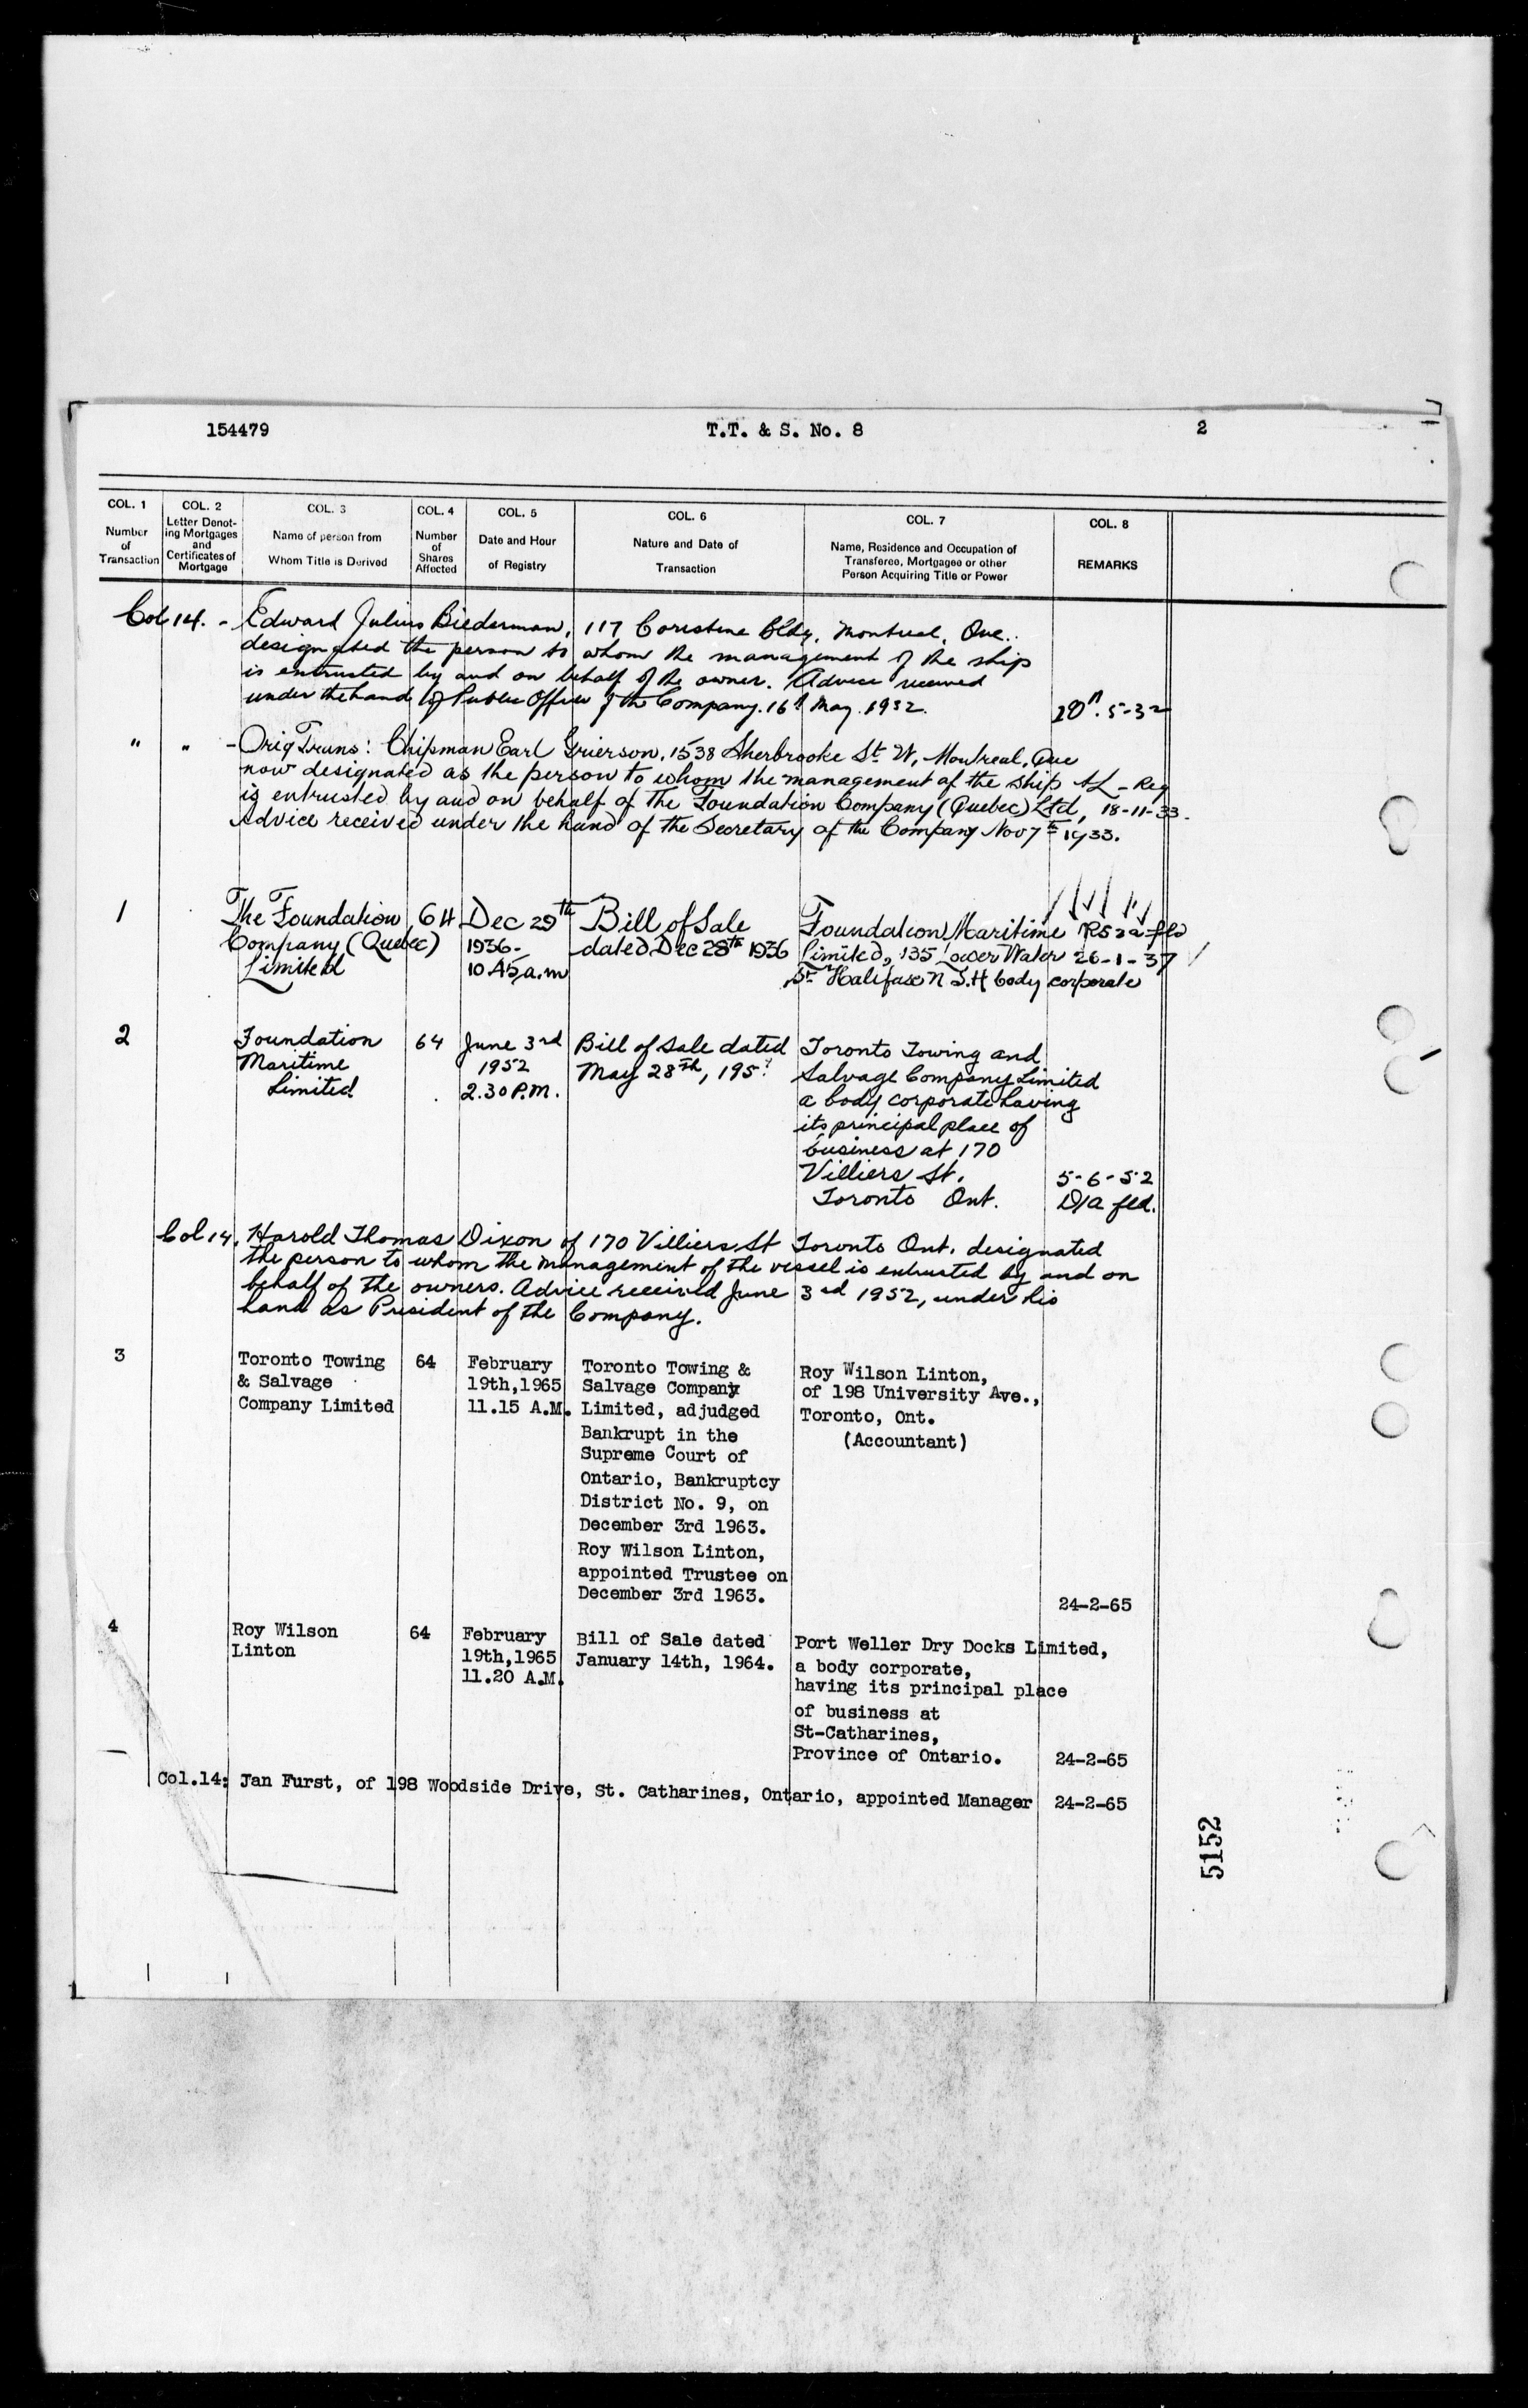 154479 T.T. & S. No. 8 2
COL. 1 COL. 2 COL. 3 COL. 4 COL. 5 COL. 6 COL. 7 COL. 8
Number of Transaction
Letter Denoting Mortgages and Certificates of Mortgage
Name of person from Whom Title is Derived
Number of Shares Affected
Date and Hour of Registry
Nature and Date of Transaction
Name, Residence and Occupation of Transferee, Mortgagee or other Person Acquiring Title or Power
REMARKS
Col 14. - Edward Julius Biederman, 117 Coristine Bldg, Montreal, Que.
designated the person to whom the management of the ship
is entrusted by and on behalf of the owner. Advice received
under the hand of Public Officer of the Company. 16th May. 1932. 5-32
" " - Orig Trans: Chipman Earl Grierson, 1538 Sherbrooke St. W, Montreal, Que
now designated as the person to whom the management of the ship Reg
is entrusted by and on behalf of The Foundation Company (Quebec) Ltd, 18-11-33.
Advice received under the hand of the Secretary of the Company Nov 7th 1933.
1
The Foundation
Company (Quebec)
Limited
64
Dec 29th
1936-
10 45 a.m
Bill of Sale
dated Dec 28th 1936
Foundation Maritime
Limited, 135 Lower Water
St. Halifax N.S. A body corporate
26-1-37
2
Foundation
Maritime
Limited
64
June 3rd
1952
2.30 P.M.
Bill of Sale dated
May 28th, 195
Toronto Towing and
Salvage Company Limited
a body corporate having
its principal place of
business at 170
Villiers St.
Toronto Ont.
5-6-52
D/a fld.
Col 14. Harold Thomas Dixon of 170 Villiers St Toronto Ont. designated
the person to whom the management of the vessel is entrusted by and on
behalf of the owners. Advice received June 3rd 1952, under his
hand as President of the Company.
3
Toronto Towing
& Salvage
Company Limited
64
February
19th,1965
11.15 A.M.
Toronto Towing &
Salvage Company
Limited, adjudged
Bankrupt in the
Supreme Court of
Ontario, Bankruptcy
District No. 9, on
December 3rd 1963.
Roy Wilson Linton,
appointed Trustee on
December 3rd 1963.
Roy Wilson Linton,
of 198 University Ave.,
Toronto, Ont.
(Accountant)
24-2-65
4
Roy Wilson
Linton
64
February
19th,1965
11.20 A.M.
Bill of Sale dated
January 14th, 1964.
Port Weller Dry Docks Limited,
a body corporate,
having its principal place
of business at
St-Catharines,
Province of Ontario.
24-2-65
Col.14: Jan Furst, of 198 Woodside Drive, St. Catharines, Ontario, appointed Manager 24-2-65
5152